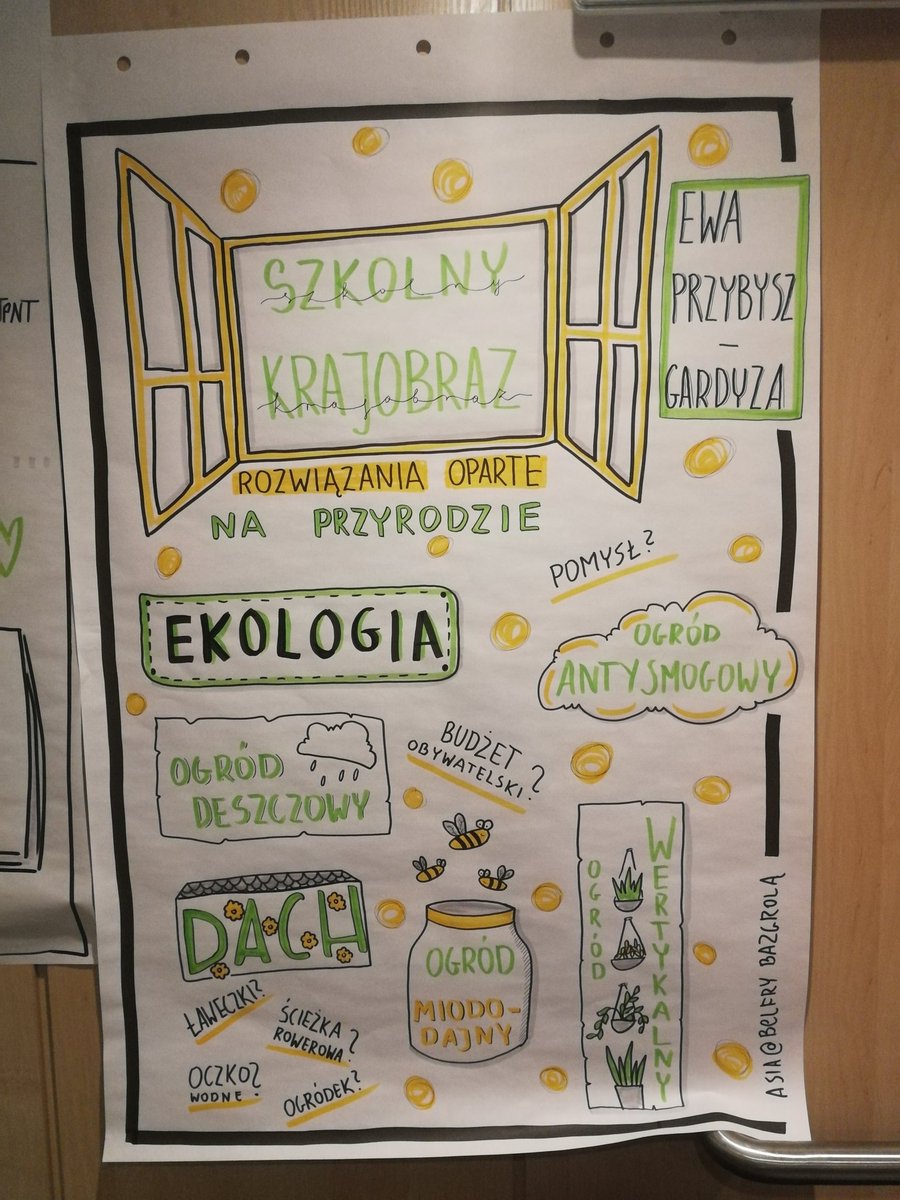 SZKOLNY
szkolny
KRAJOBRAZ
krajobraz
EWA
PRZYBYSZ
–
GARDYZA
ROZWIĄZANIA OPARTE
NA PRZYRODZIE
POMYSŁ?
EKOLOGIA
OGRÓD
ANTYSMOGOWY
OGRÓD
DESZCZOWY
BUDŻET
OBYWATELSKI?
DACH
OGRÓD
MIODO-
DAJNY
OGRÓD
WERTYKALNY
ŁAWECZKI?
ŚCIEŻKA
ROWEROWA?
OCZKO?
WODNE
OGRÓDEK?
ASIA@BELFRY BAZGROLĄ